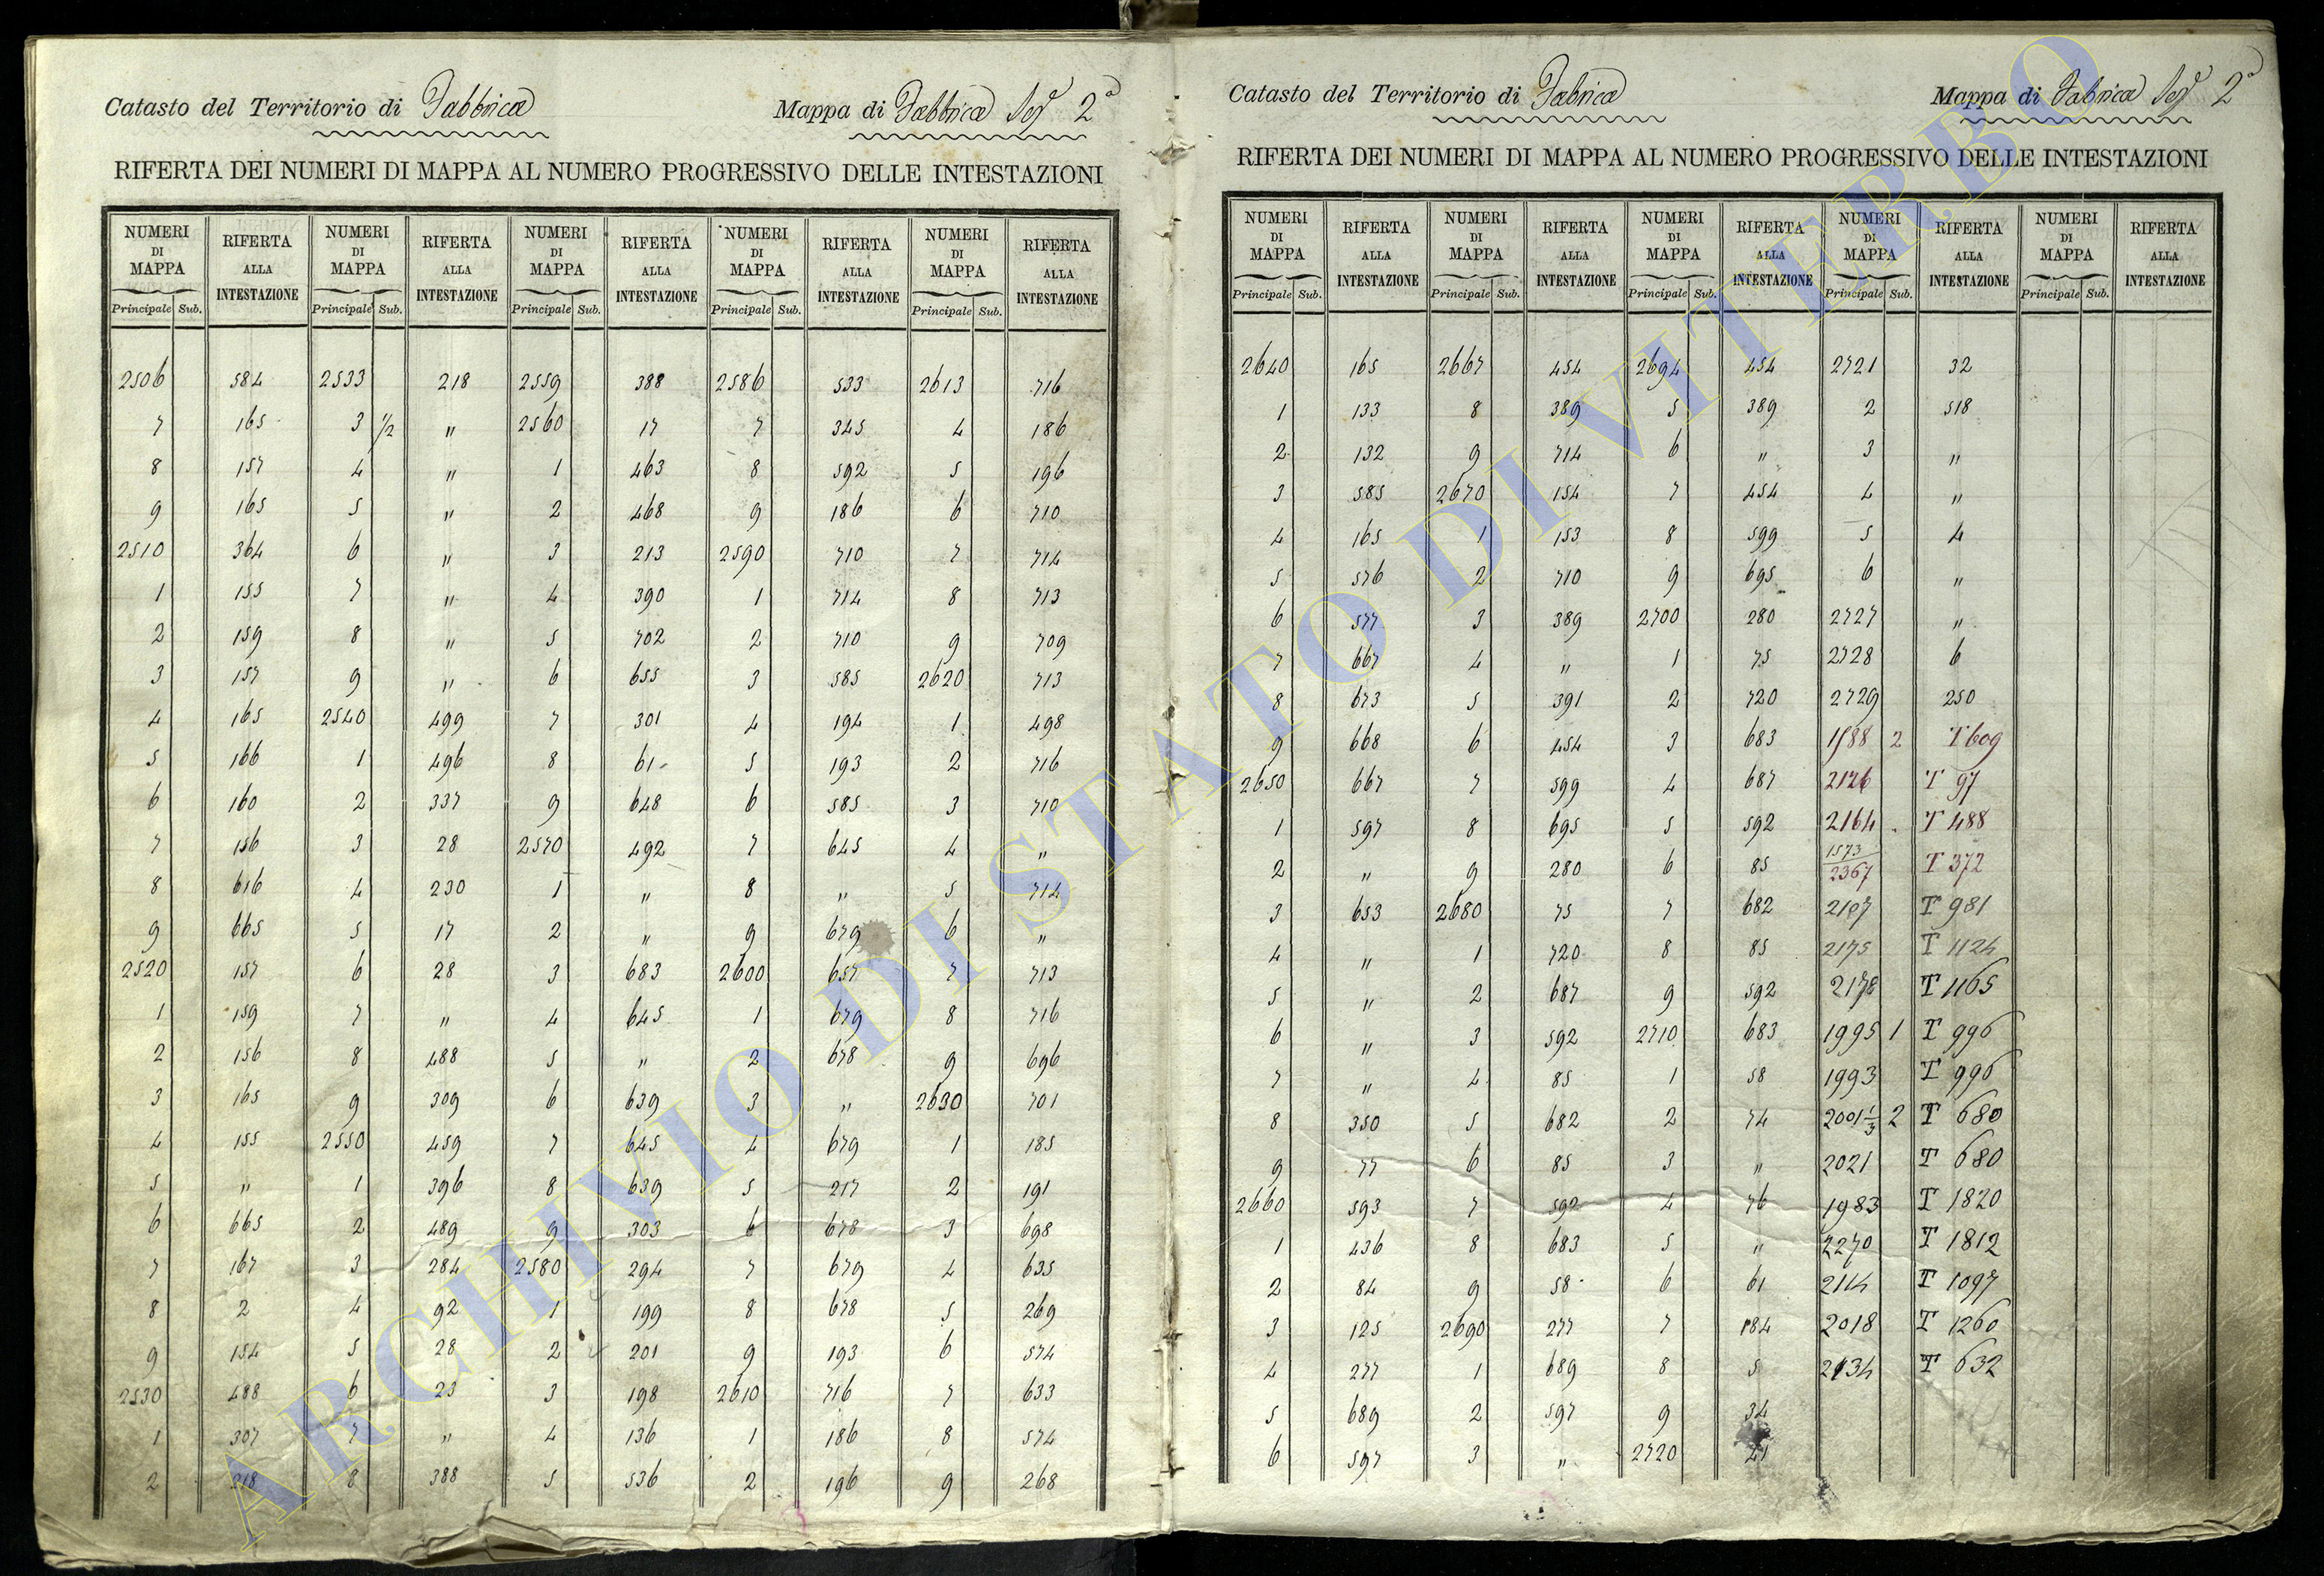 Catasto del Territorio di Fabbrica Mappa di Fabbrica Sez 2ª
RIFERTA DEI NUMERI DI MAPPA AL NUMERO PROGRESSIVO DELLE INTESTAZIONI
NUMERI DI MAPPA RIFERTA ALLA INTESTAZIONE NUMERI DI MAPPA RIFERTA ALLA INTESTAZIONE NUMERI DI MAPPA RIFERTA ALLA INTESTAZIONE NUMERI DI MAPPA RIFERTA ALLA INTESTAZIONE NUMERI DI MAPPA RIFERTA ALLA INTESTAZIONE
Principale Sub. Principale Sub. Principale Sub. Principale Sub. Principale Sub.
2506 584 2533 218 2559 388 2586 533 2613 716
7 165 3 1/2 " 2560 17 7 345 4 186
8 157 4 " 1 463 8 592 5 196
9 165 5 " 2 468 9 186 6 710
2510 364 6 " 3 213 2590 710 7 714
1 155 7 " 4 390 1 714 8 713
2 159 8 " 5 702 2 710 9 709
3 157 9 " 6 655 3 585 2620 713
4 165 2540 499 7 301 4 194 1 498
5 166 1 496 8 61 5 193 2 716
6 160 2 337 9 648 6 585 3 710
7 156 3 28 2570 492 7 645 4 "
8 616 4 230 1 " 8 " 5 714
9 665 5 17 2 " 9 679 6 "
2520 157 6 28 3 683 2600 657 7 713
1 159 7 " 4 645 1 679 8 716
2 156 8 488 5 " 2 678 9 696
3 165 9 309 6 639 3 " 2630 701
4 155 2550 459 7 645 4 679 1 185
5 " 1 396 8 639 5 217 2 191
6 665 2 489 9 303 6 678 3 698
7 167 3 284 2580 294 7 679 4 635
8 2 4 92 1 199 8 678 5 269
9 154 5 28 2 201 9 193 6 574
2530 488 6 23 3 198 2610 716 7 633
1 307 7 " 4 136 1 186 8 574
2 218 8 388 5 536 2 196 9 268
Catasto del Territorio di Fabrica Mappa di Fabrica Sez 2ª
RIFERTA DEI NUMERI DI MAPPA AL NUMERO PROGRESSIVO DELLE INTESTAZIONI
NUMERI DI MAPPA RIFERTA ALLA INTESTAZIONE NUMERI DI MAPPA RIFERTA ALLA INTESTAZIONE NUMERI DI MAPPA RIFERTA ALLA INTESTAZIONE NUMERI DI MAPPA RIFERTA ALLA INTESTAZIONE NUMERI DI MAPPA RIFERTA ALLA INTESTAZIONE
Principale Sub. Principale Sub. Principale Sub. Principale Sub. Principale Sub.
2640 165 2667 454 2694 454 2721 32
1 133 8 389 5 389 2 518
2 132 9 714 6 " 3 "
3 585 2670 154 7 454 4 "
4 165 1 153 8 599 5 4
5 576 2 710 9 695 6 "
6 577 3 389 2700 280 2727 "
7 667 4 " 1 75 2728 6
8 673 5 391 2 720 2729 250
9 668 6 454 3 683 1588 2 T 609
2650 667 7 599 4 687 2126 T 97
1 597 8 695 5 592 2164 T 488
2 " 9 280 6 85 1573/2367 T 372
3 653 2680 75 7 682 2107 T 981
4 " 1 720 8 85 2175 T 1124
5 " 2 687 9 592 2178 T 1165
6 " 3 592 2710 683 1995 1 T 996
7 " 4 85 1 58 1993 T 996
8 350 5 682 2 74 2001 1/3 2 T 680
9 77 6 85 3 " 2021 T 680
2660 593 7 592 4 76 1983 T 1820
1 436 8 683 5 " 2270 T 1812
2 84 9 58 6 61 2114 T 1097
3 125 2690 277 7 184 2018 T 1260
4 277 1 689 8 5 2134 T 632
5 689 2 597 9 34
6 597 3 " 2720
ARCHIVIO DI STATO DI VITERBO